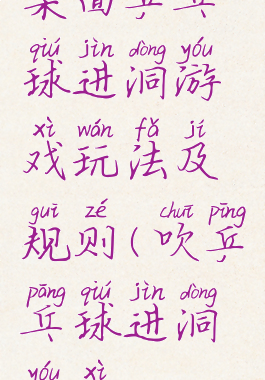 桌面乒乓
qiú jìn dòng yóu
球进洞游
xì wán fǎ jí
戏玩法及
guī zé chuī pīng
规则(吹乒
pāng qiú jìn dòng
乓球进洞
yóu xì